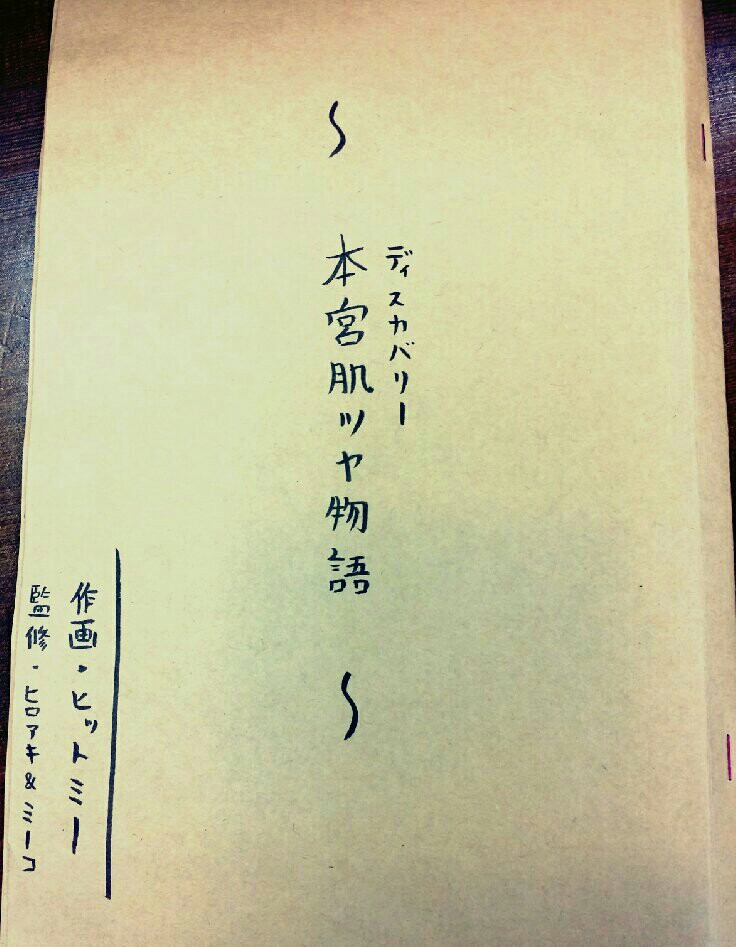 ディスカバリー
〜本宮肌ツヤ物語〜
作画・ヒットミー
監修・ヒロアキ&ミーコ